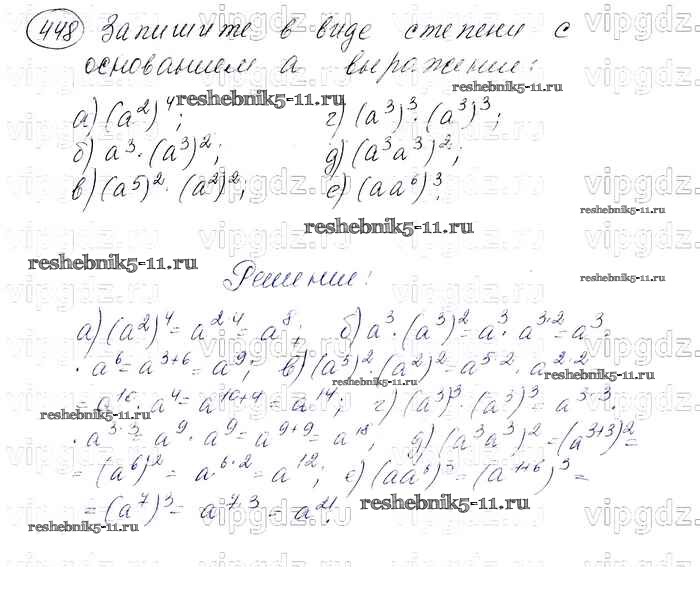 448 Запишите в виде степени с
основанием a выражение:
а) (a²)⁴; г) (a³)³ · (a³)³;
б) a³ · (a³)²; д) (a³a³)²;
в) (a⁵)² · (a²)²; е) (aa⁶)³.
Решение:
а) (a²)⁴ = a²·⁴ = a⁸; б) a³ · (a³)² = a³ · a³·² = a³ ·
· a⁶ = a³⁺⁶ = a⁹; в) (a⁵)² · (a²)² = a⁵·² · a²·² =
= a¹⁰ · a⁴ = a¹⁰⁺⁴ = a¹⁴; г) (a³)³ · (a³)³ = a³·³ ·
· a³·³ = a⁹ · a⁹ = a⁹⁺⁹ = a¹⁸; д) (a³a³)² = (a³⁺³)² =
= (a⁶)² = a⁶·² = a¹²; е) (aa⁶)³ = (a¹⁺⁶)³ =
= (a⁷)³ = a⁷·³ = a²¹.
reshebnik5-11.ru
vipgdz.ru